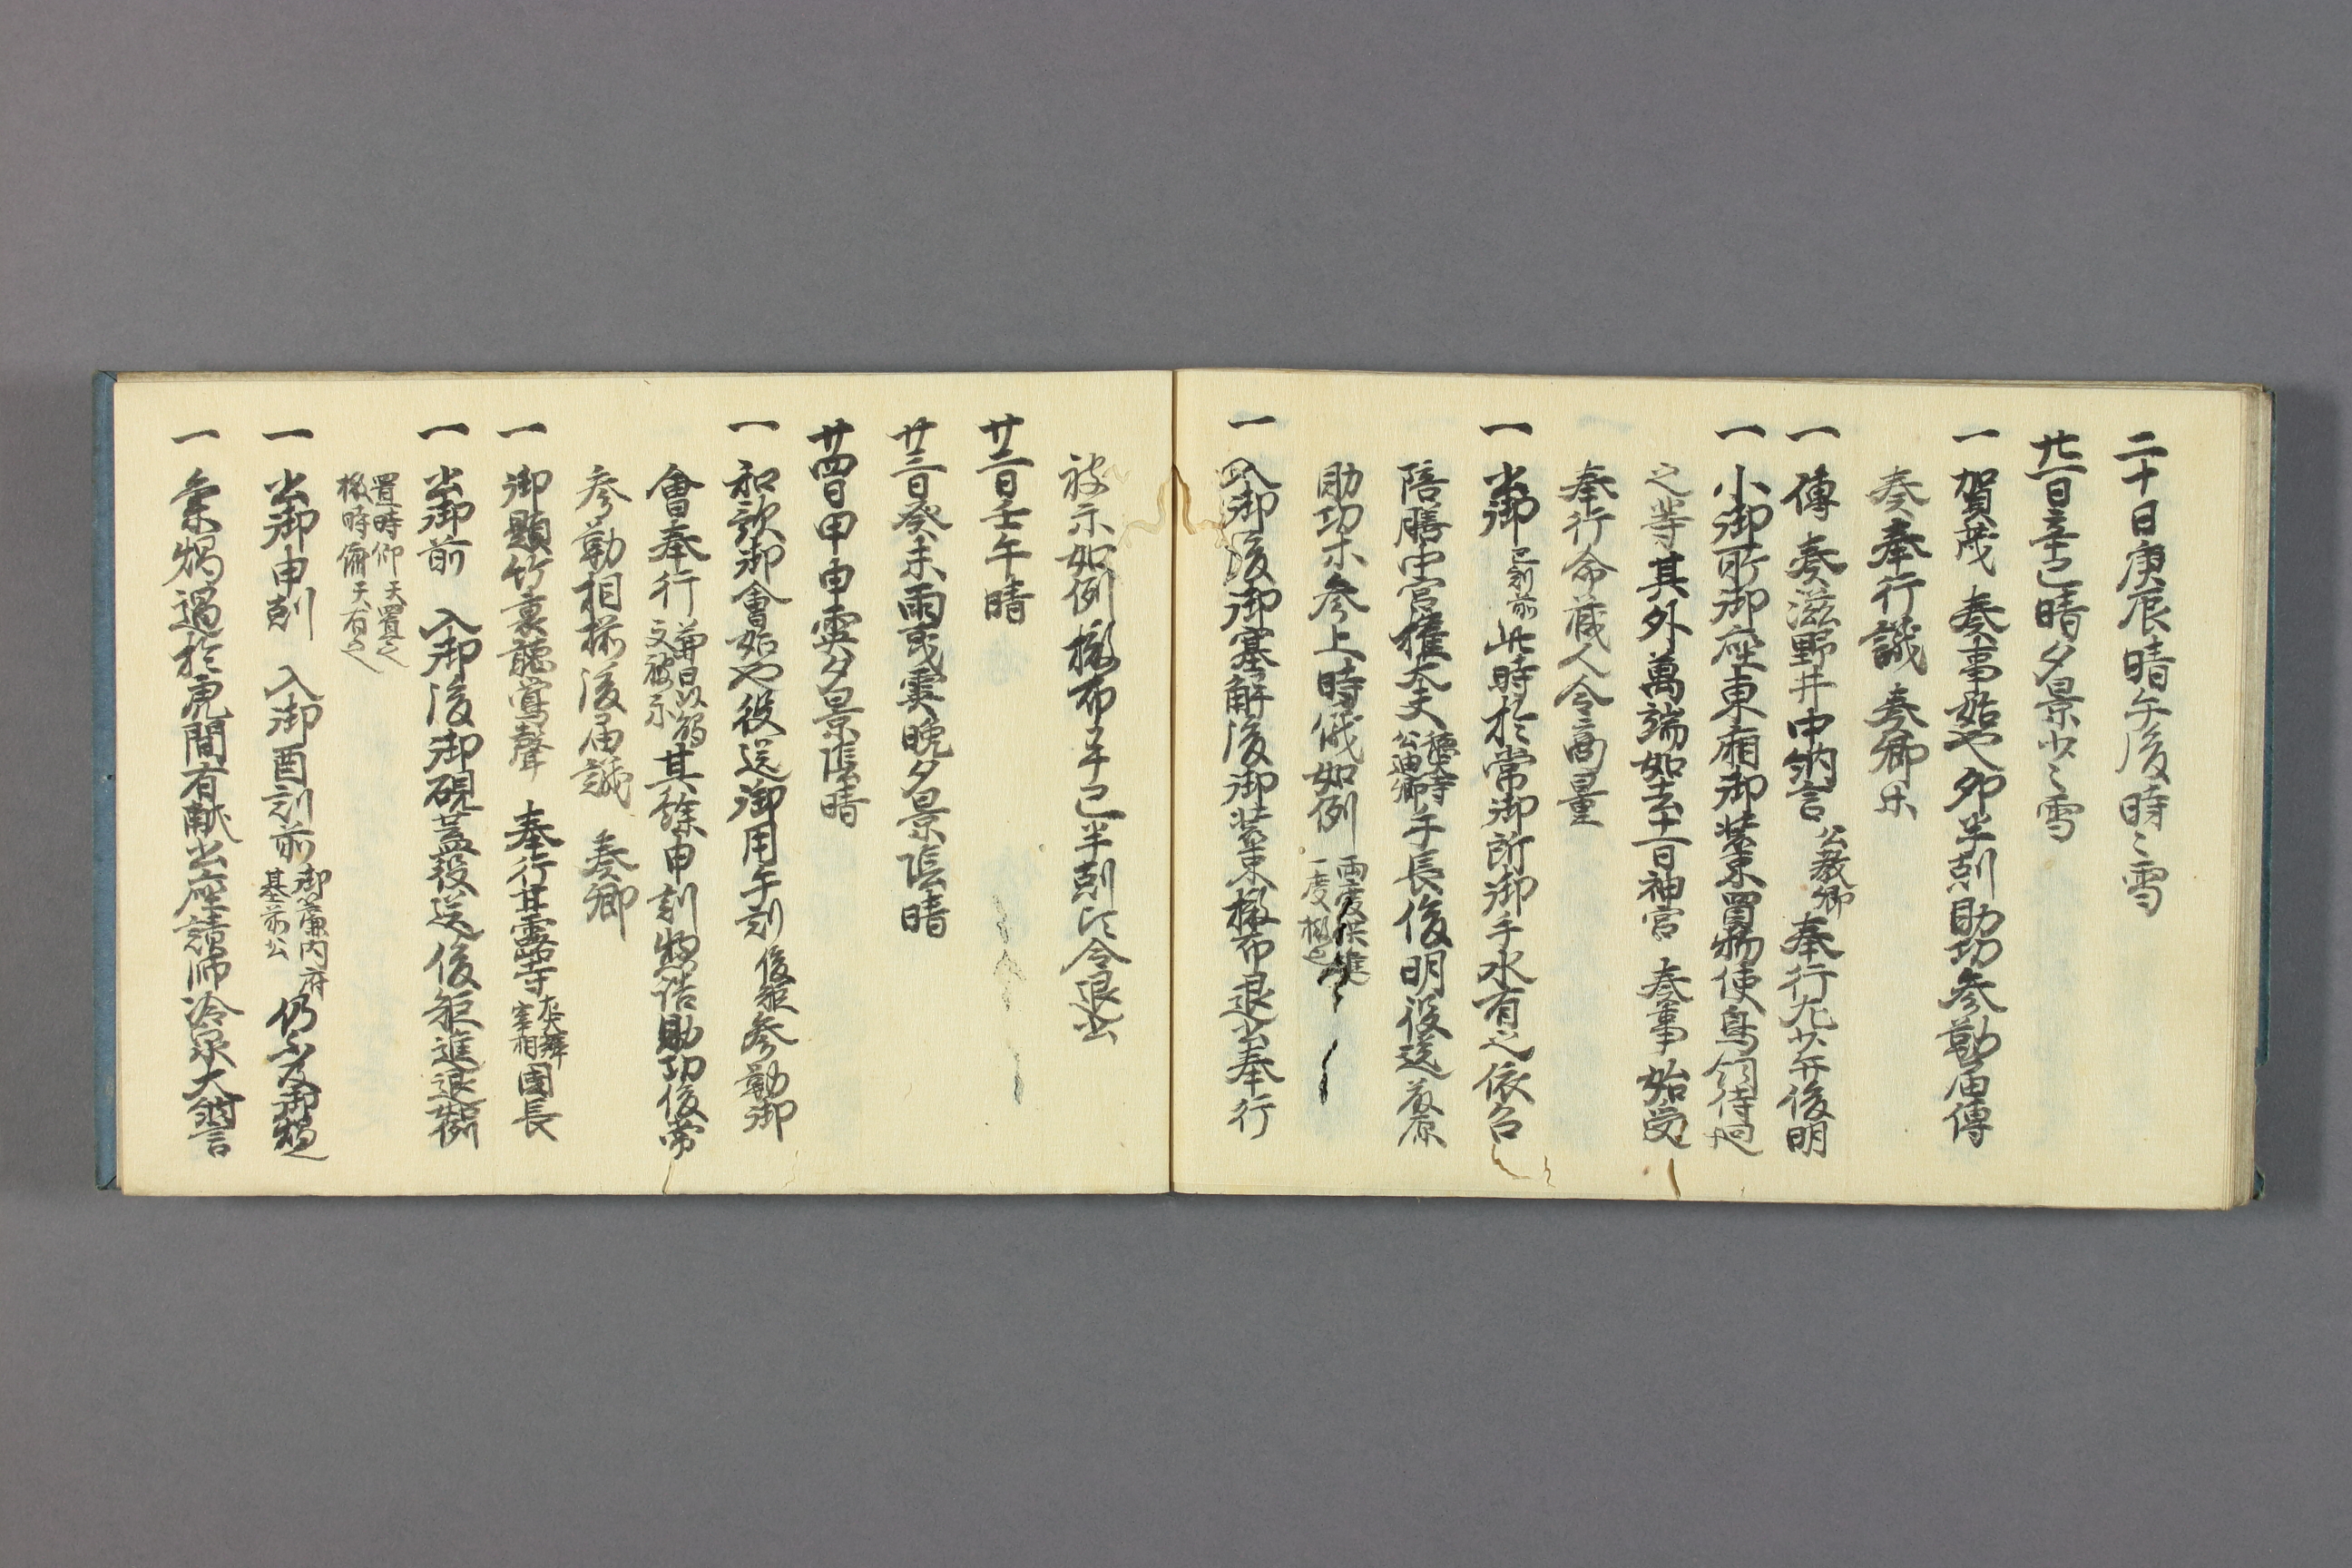 二十日庚辰晴午後時々雪
廿一日辛巳晴夕景少々雪
一賀茂　奏事始也卯半刻助功参勤届傳
奏奉行議　奏卿示
一傳　奏滋野井中納言公敬卿奉行左少弁俊明
一小御所御座東廂御装束置物使鳥飼侍廻
之等其外萬端如去十一日神宮　奏事始受
奉行命蔵人令商量
一出御巳刻前此時於常御所御手水有之依召
陪膳中宮権大夫徳大寺公迪卿手長俊明役送
助功等参上時儀如例
一入御後御塞解後御装束撤却退出奉行
被示如例撤却畢巳半刻比令退出
廿二日壬午晴
廿三日癸未雨或霙晩夕景陰晴
廿四日甲申霙夕景陰晴
一和歌御會始也役送御用午刻俊矩参勤御
會奉行 其餘申刻 助功俊常
参勤相揃後届議　奏卿
一御題竹裏聴鶯聲　奉行甘露寺宰相國長
一出御前　入御後御硯蓋役送俊矩進退如例
置時仰天置之
撤時俯天有之
一出御申刻　入御酉刻前御簾内府基前公仍 御
一 於虎間有献出座請師冷泉大納言